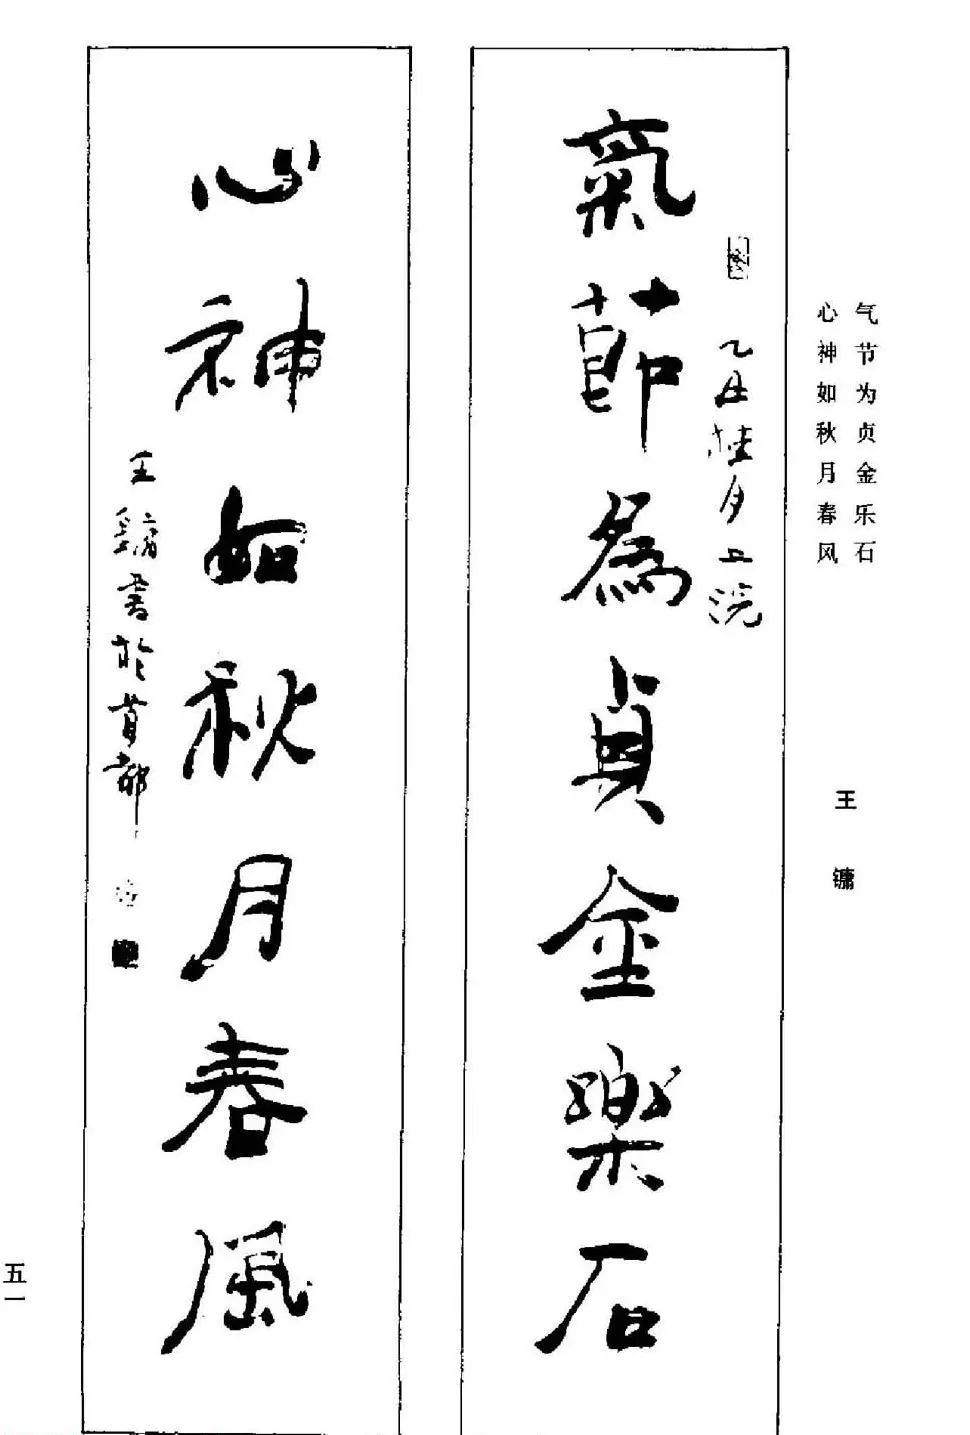 气节为贞金乐石
心神如秋月春风
王镛
乙丑桂月上浣
氣節為貞金樂石
心神如秋月春風
王鏞書於首都
五一